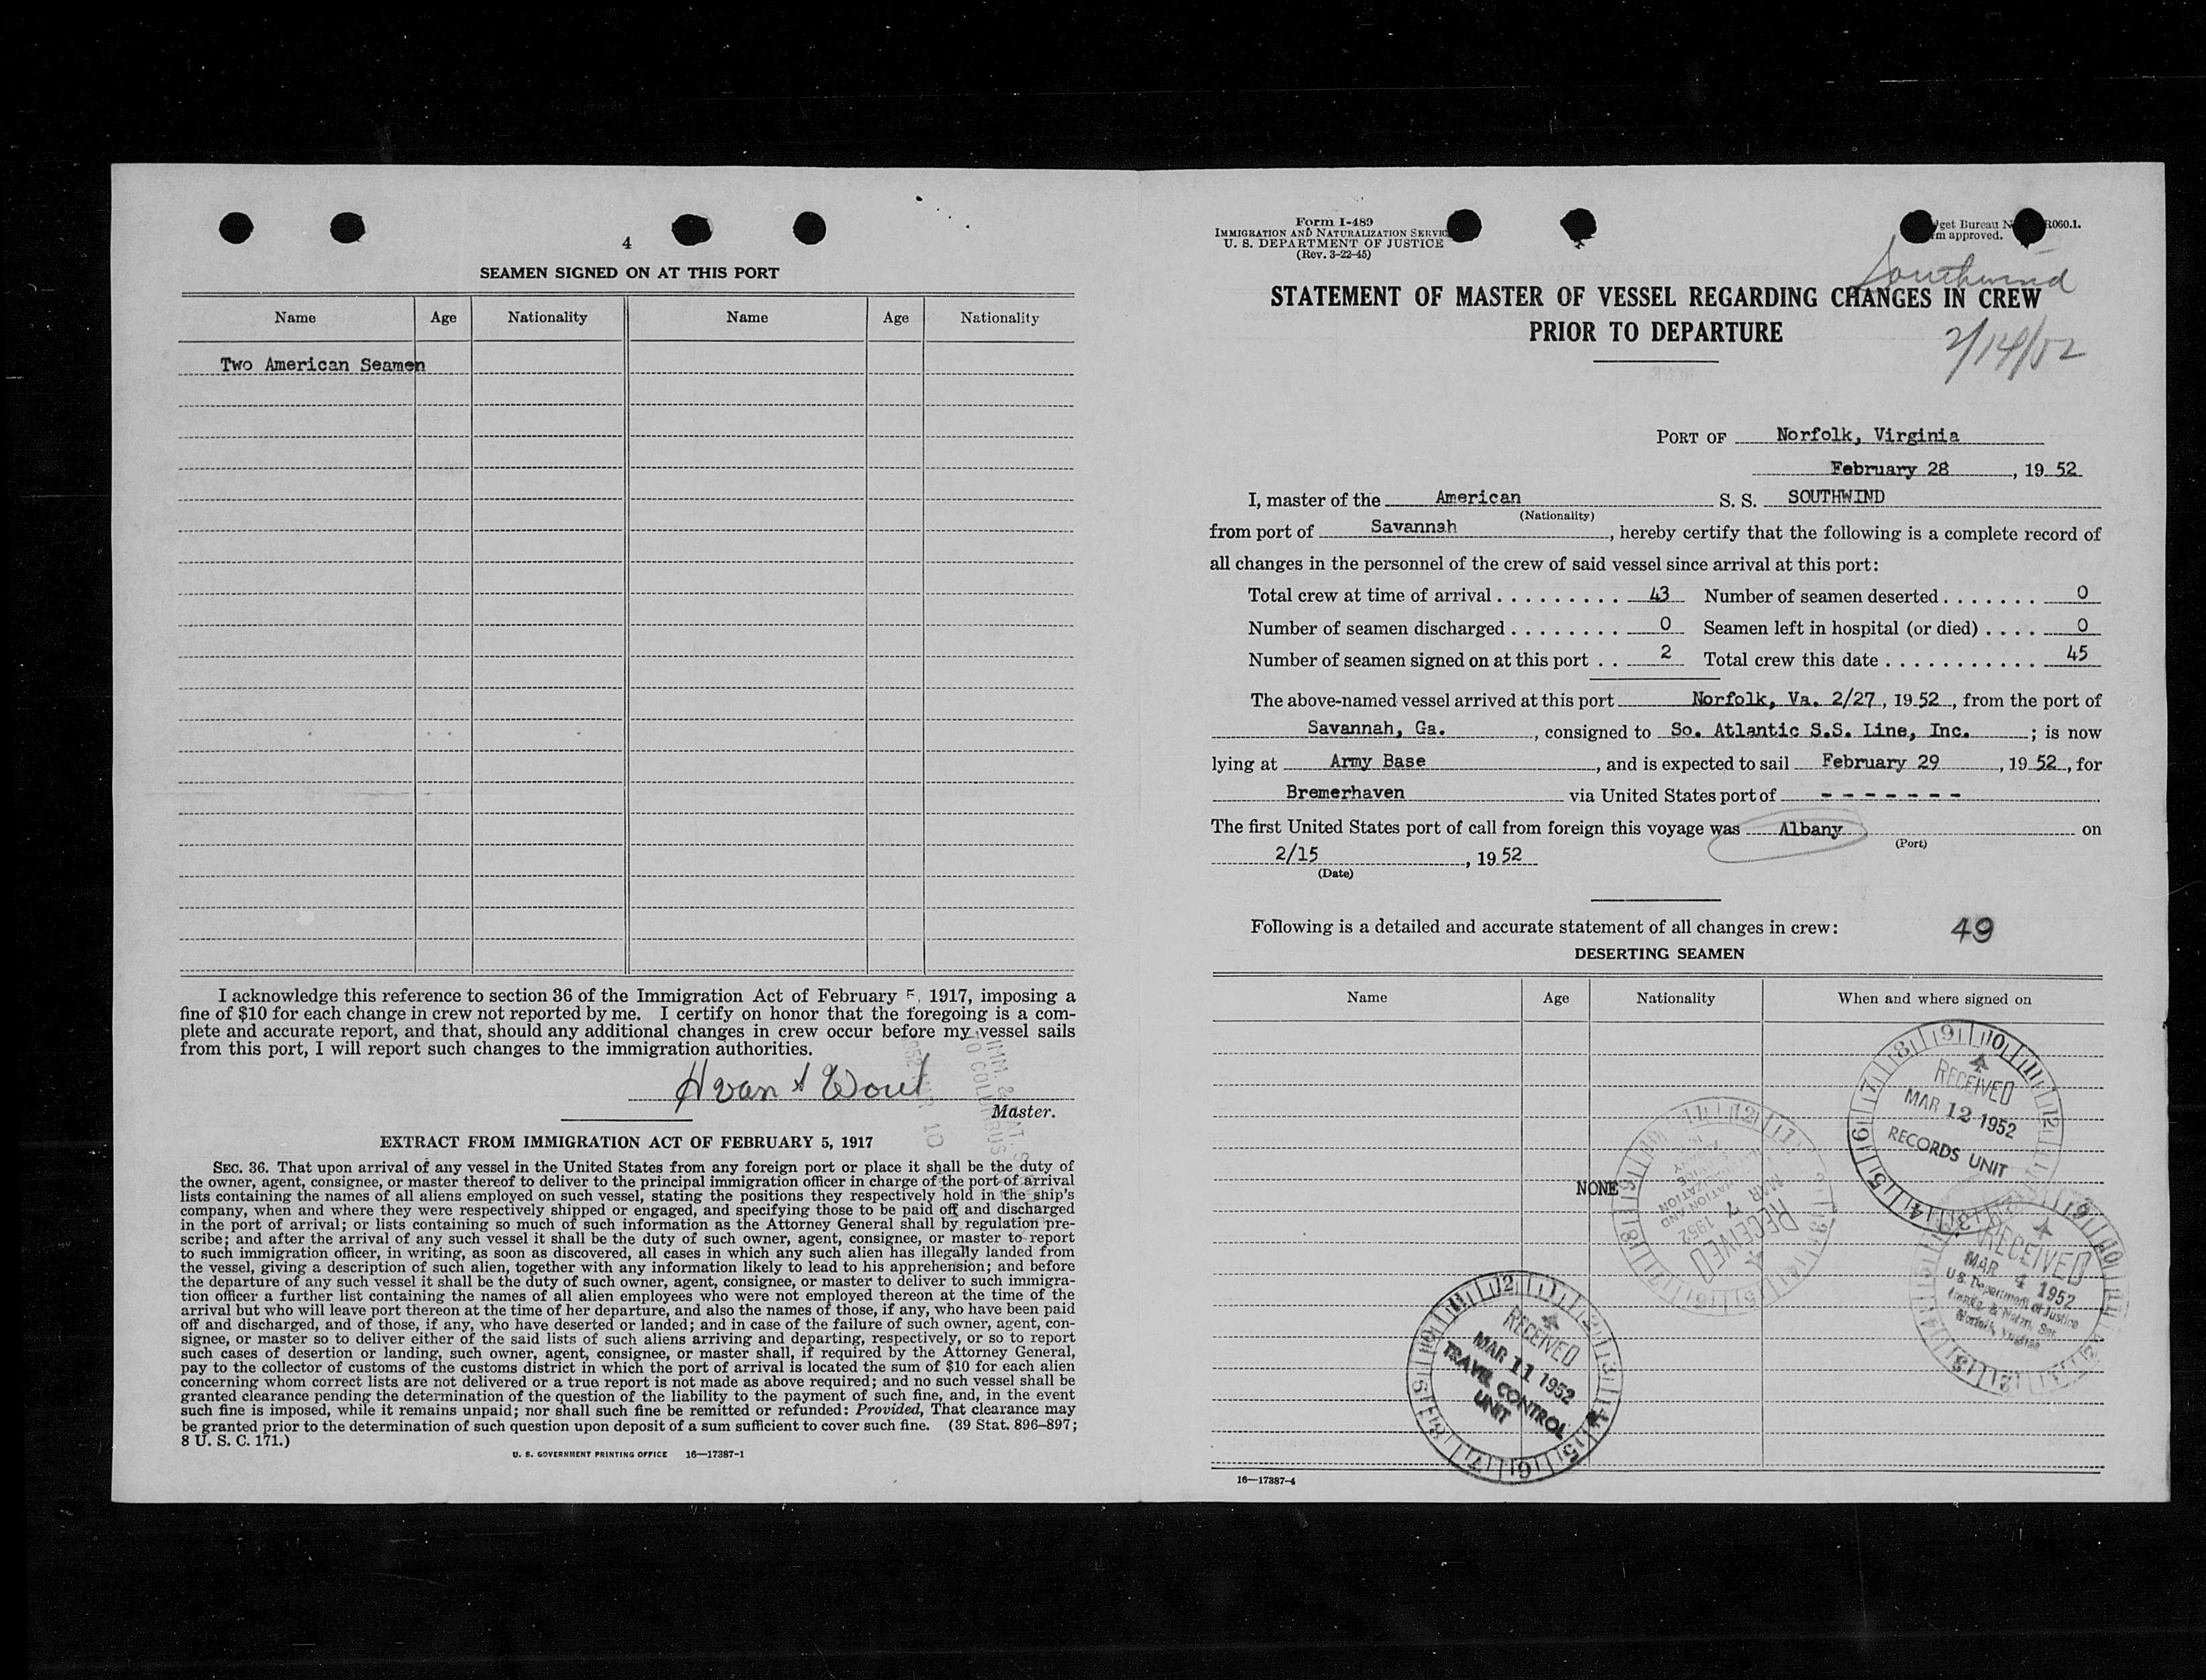 4
SEAMEN SIGNED ON AT THIS PORT
Name Age Nationality Name Age Nationality
Two American Seamen
I acknowledge this reference to section 36 of the Immigration Act of February 5, 1917, imposing a
fine of $10 for each change in crew not reported by me. I certify on honor that the foregoing is a com-
plete and accurate report, and that, should any additional changes in crew occur before my vessel sails
from this port, I will report such changes to the immigration authorities.
Master.
EXTRACT FROM IMMIGRATION ACT OF FEBRUARY 5, 1917
SEC. 36. That upon arrival of any vessel in the United States from any foreign port or place it shall be the duty of
the owner, agent, consignee, or master thereof to deliver to the principal immigration officer in charge of the port of arrival
lists containing the names of all aliens employed on such vessel, stating the positions they respectively hold in the ship's
company, when and where they were respectively shipped or engaged, and specifying those to be paid off and discharged
in the port of arrival; or lists containing so much of such information as the Attorney General shall by regulation pre-
scribe; and after the arrival of any such vessel it shall be the duty of such owner, agent, consignee, or master to report
to such immigration officer, in writing, as soon as discovered, all cases in which any such alien has illegally landed from
the vessel, giving a description of such alien, together with any information likely to lead to his apprehension; and before
the departure of any such vessel it shall be the duty of such owner, agent, consignee, or master to deliver to such immigra-
tion officer a further list containing the names of all alien employees who were not employed thereon at the time of the
arrival but who will leave port thereon at the time of her departure, and also the names of those, if any, who have been paid
off and discharged, and of those, if any, who have deserted or landed; and in case of the failure of such owner, agent, con-
signee, or master so to deliver either of the said lists of such aliens arriving and departing, respectively, or so to report
such cases of desertion or landing, such owner, agent, consignee, or master shall, if required by the Attorney General,
pay to the collector of customs of the customs district in which the port of arrival is located the sum of $10 for each alien
concerning whom correct lists are not delivered or a true report is not made as above required; and no such vessel shall be
granted clearance pending the determination of the question of the liability to the payment of such fine, and, in the event
such fine is imposed, while it remains unpaid; nor shall such fine be remitted or refunded: Provided, That clearance may
be granted prior to the determination of such question upon deposit of a sum sufficient to cover such fine. (39 Stat. 896–897;
8 U. S. C. 171.)
U. S. GOVERNMENT PRINTING OFFICE 16—17387-1
Form I-489
IMMIGRATION AND NATURALIZATION SERVIC
U. S. DEPARTMENT OF JUSTICE
(Rev. 3-22-45)
get Bureau N R060.1.
m approved.
Southwind
STATEMENT OF MASTER OF VESSEL REGARDING CHANGES IN CREW
PRIOR TO DEPARTURE
2/14/52
PORT OF Norfolk, Virginia
February 28, 19 52
I, master of the American S. S. SOUTHWIND
(Nationality)
from port of Savannah, hereby certify that the following is a complete record of
all changes in the personnel of the crew of said vessel since arrival at this port:
Total crew at time of arrival . . . . . . . . . . 43 Number of seamen deserted . . . . . . . 0
Number of seamen discharged . . . . . . . . 0 Seamen left in hospital (or died) . . . . 0
Number of seamen signed on at this port . . 2 Total crew this date . . . . . . . . . . . . 45
The above-named vessel arrived at this port Norfolk, Va. 2/27, 19 52, from the port of
Savannah, Ga., consigned to So. Atlantic S.S. Line, Inc. ; is now
lying at Army Base, and is expected to sail February 29, 19 52, for
Bremerhaven via United States port of - - - - - - -
The first United States port of call from foreign this voyage was Albany on
(Port)
2/15, 19 52
(Date)
Following is a detailed and accurate statement of all changes in crew: 49
DESERTING SEAMEN
Name Age Nationality When and where signed on
RECEIVED
MAR 12 1952
RECORDS UNIT
NONE
RECEIVED
MAR 7 1952
RECEIVED
MAR 4 1952
U.S. Department of Justice
Norfolk, Virginia
RECEIVED
MAR 11 1952
TRAVEL CONTROL
UNIT
16—17387-4